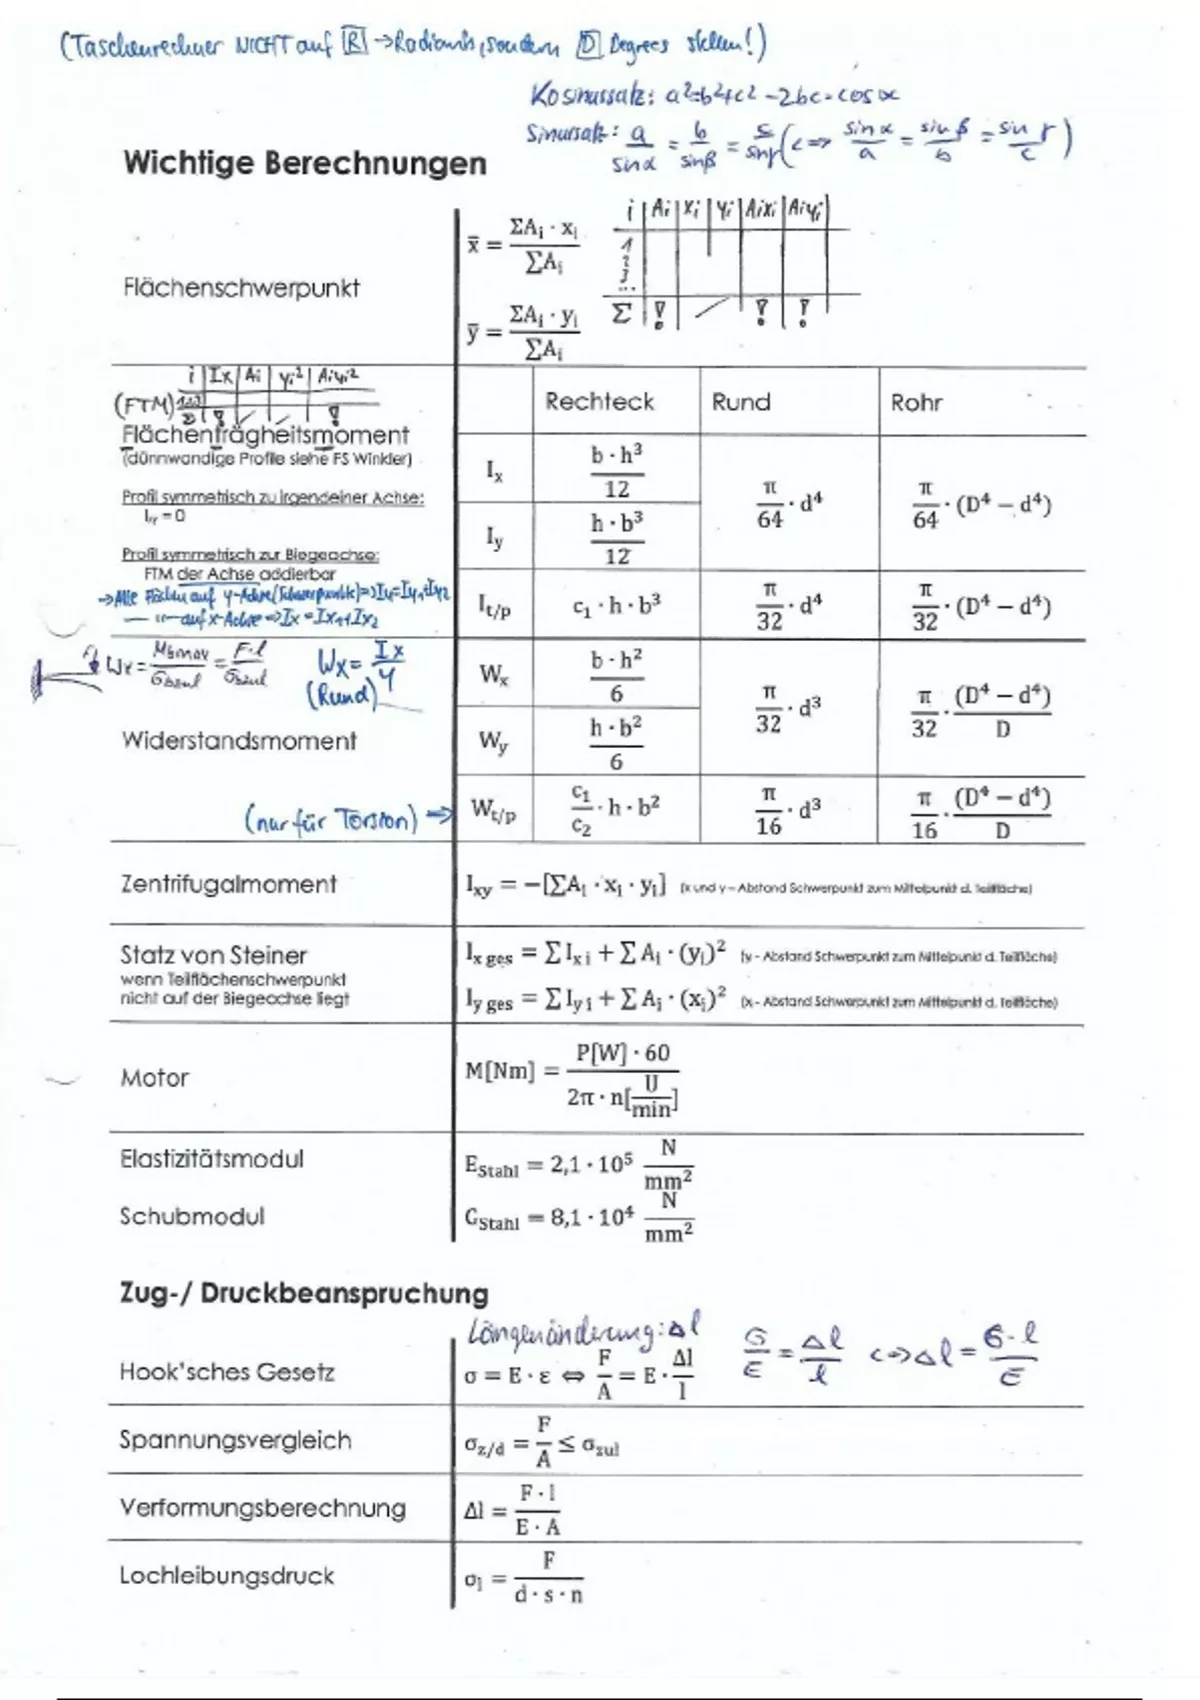 (Taschenrechner NICHT auf R → Radiants, sondern D Degrees stellen!)
Kosinussatz: a²=b²+c²-2bc·cos α
Sinussatz: a/sinα = b/sinβ = c/sinγ (<=> sin α/a = sin β/b = sin γ/c)
Wichtige Berechnungen
Flächenschwerpunkt
x̄ = ΣAᵢ · xᵢ / ΣAᵢ
ȳ = ΣAᵢ · yᵢ / ΣAᵢ
i | Ai | xi | yi | Aixi | Aiyi
1
2
3
...
Σ | ! | / | ! | !
i | Ix | Ai | yi² | Aiyi²
(FTM)
Flächenträgheitsmoment
(dünnwandige Profile siehe FS Winkler)
Profil symmetrisch zu irgendeiner Achse:
Iₓᵧ = 0
Profil symmetrisch zur Biegeachse:
FTM der Achse addierbar
→ Alle Flächen auf y-Achse (Schwerpunkte) => Iy=Iy1+Iy2
— " — auf x-Achse => Ix = Ix1+Ix2
Rechteck | Rund | Rohr
Iₓ | b · h³ / 12 | π/64 · d⁴ | π/64 · (D⁴ − d⁴)
Iy | h · b³ / 12
It/p | c₁ · h · b³ | π/32 · d⁴ | π/32 · (D⁴ − d⁴)
Wx = Mbmax / σbzul = F·l / σbzul
Wx = Ix / y
(Rund)
Widerstandsmoment
(nur für Torsion) →
Wₓ | b · h² / 6 | π/32 · d³ | π/32 · (D⁴ − d⁴) / D
Wy | h · b² / 6
Wt/p | c₁/c₂ · h · b² | π/16 · d³ | π/16 · (D⁴ − d⁴) / D
Zentrifugalmoment
Ixy = −[ΣAᵢ · xᵢ · yᵢ] (x und y – Abstand Schwerpunkt zum Mittelpunkt d. Teilfläche)
Statz von Steiner
wenn Teilflächenschwerpunkt
nicht auf der Biegeachse liegt
Ix ges = Σ Ix i + Σ Aᵢ · (yᵢ)² (y - Abstand Schwerpunkt zum Mittelpunkt d. Teilfläche)
Iy ges = Σ Iy i + Σ Aᵢ · (xᵢ)² (x - Abstand Schwerpunkt zum Mittelpunkt d. Teilfläche)
Motor
M[Nm] = P[W] · 60 / 2π · n[U/min]
Elastizitätsmodul
EStahl = 2,1 · 10⁵ N/mm²
Schubmodul
GStahl = 8,1 · 10⁴ N/mm²
Zug-/ Druckbeanspruchung
Längenänderung: Δl
σ/E = Δl/l <=> Δl = σ·l / E
Hook'sches Gesetz
σ = E · ε ⇔ F/A = E · Δl/l
Spannungsvergleich
σz/d = F/A ≤ σzul
Verformungsberechnung
Δl = F · l / E · A
Lochleibungsdruck
σl = F / d · s · n